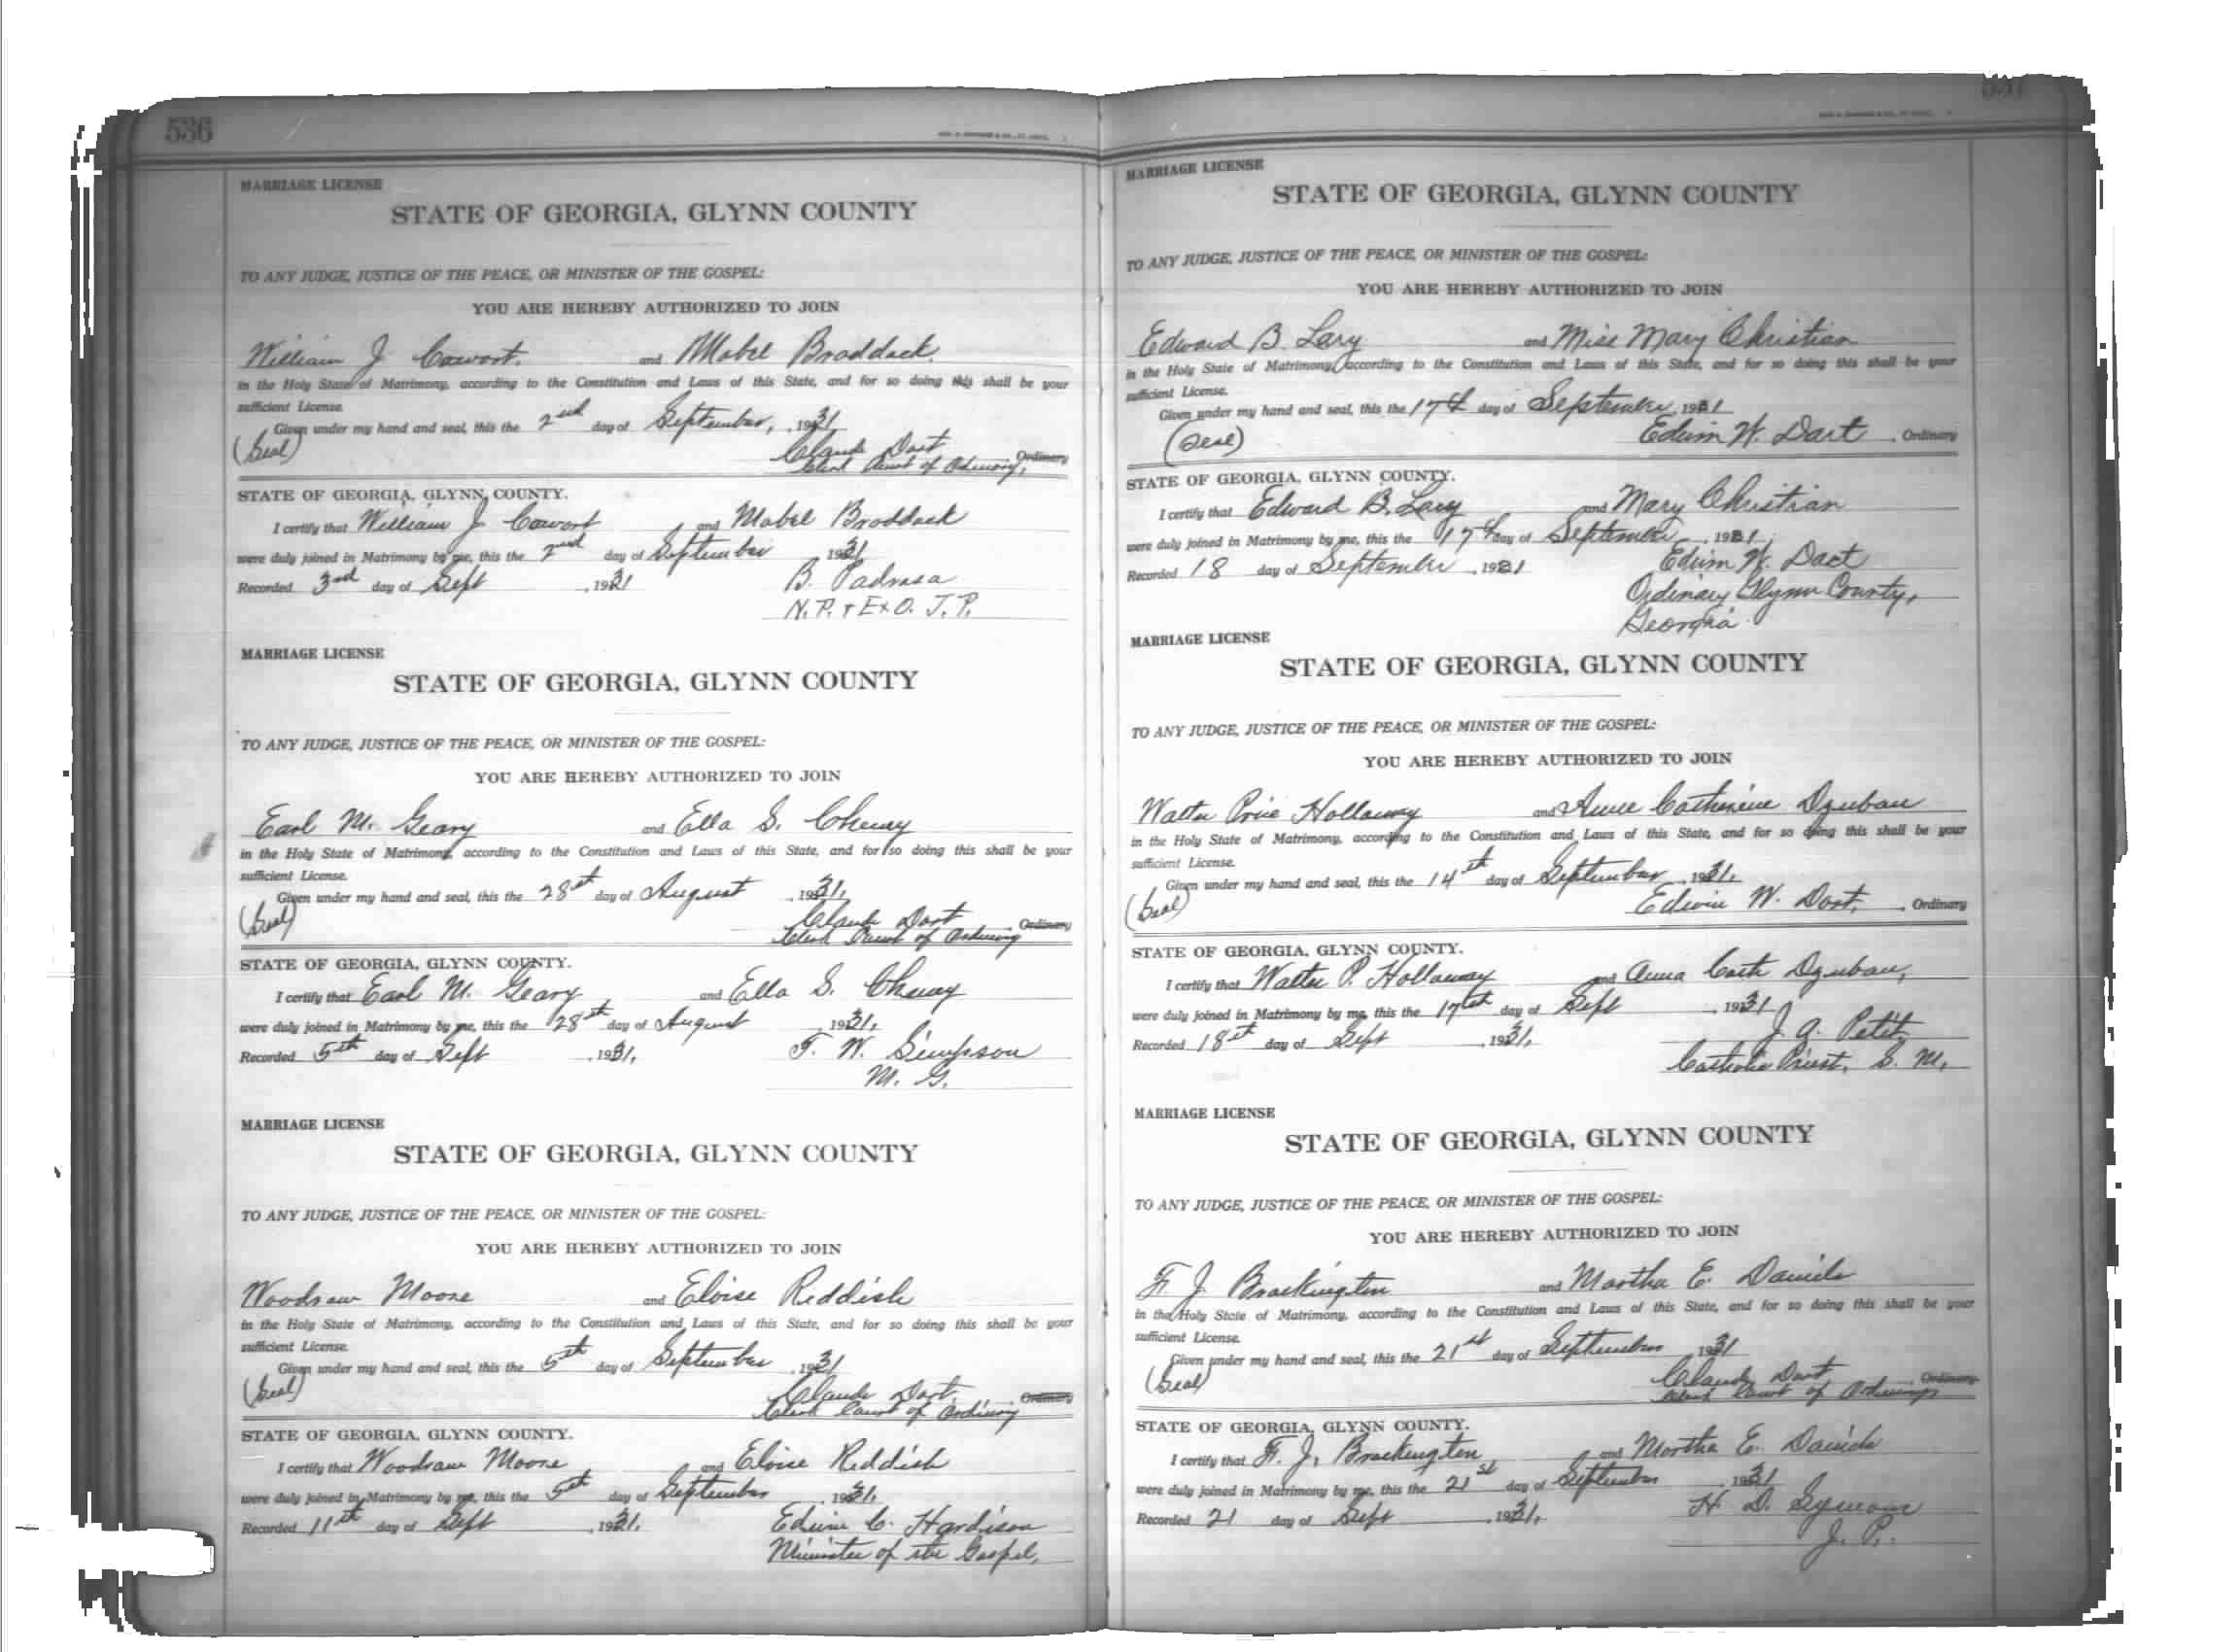 536
MARRIAGE LICENSE
STATE OF GEORGIA, GLYNN COUNTY
TO ANY JUDGE, JUSTICE OF THE PEACE, OR MINISTER OF THE GOSPEL:
YOU ARE HEREBY AUTHORIZED TO JOIN
William J. Cowart. and Mabel Braddock.
in the Holy State of Matrimony, according to the Constitution and Laws of this State, and for so doing this shall be your
sufficient License.
Given under my hand and seal, this the 2nd day of September, , 1931
(Seal) Claude Dart
Clerk Court of Ordinary, Ordinary
STATE OF GEORGIA, GLYNN COUNTY.
I certify that William J. Cowart and Mabel Braddock
were duly joined in Matrimony by me, this the 2nd day of September 1931
Recorded 3rd day of Sept , 1931 B.
N.P. & Ex O. J.P.
MARRIAGE LICENSE
STATE OF GEORGIA, GLYNN COUNTY
TO ANY JUDGE, JUSTICE OF THE PEACE, OR MINISTER OF THE GOSPEL:
YOU ARE HEREBY AUTHORIZED TO JOIN
Earl M. Geary and Ella S.
in the Holy State of Matrimony, according to the Constitution and Laws of this State, and for so doing this shall be your
sufficient License.
Given under my hand and seal, this the 28st day of August , 1931,
(Seal) Claude Dart
Clerk Court of Ordinary Ordinary
STATE OF GEORGIA, GLYNN COUNTY.
I certify that Earl M. Geary and Ella S.
were duly joined in Matrimony by me, this the 28st day of August , 1931,
Recorded 5th day of Sept , 1931, T. W. Simpson
M. G.
MARRIAGE LICENSE
STATE OF GEORGIA, GLYNN COUNTY
TO ANY JUDGE, JUSTICE OF THE PEACE, OR MINISTER OF THE GOSPEL:
YOU ARE HEREBY AUTHORIZED TO JOIN
Woodraw Moore and Eloise Reddish
in the Holy State of Matrimony, according to the Constitution and Laws of this State, and for so doing this shall be your
sufficient License.
Given under my hand and seal, this the 5th day of September , 1931
(Seal) Claude Dart.
Clerk Court of Ordinary Ordinary
STATE OF GEORGIA, GLYNN COUNTY.
I certify that Woodraw Moore and Eloise Reddish
were duly joined in Matrimony by me, this the 5th day of September , 1931,
Recorded 11th day of Sept , 1931, Edwin C. Hardison
Minister of the Gospel,
537
MARRIAGE LICENSE
STATE OF GEORGIA, GLYNN COUNTY
TO ANY JUDGE, JUSTICE OF THE PEACE, OR MINISTER OF THE GOSPEL:
YOU ARE HEREBY AUTHORIZED TO JOIN
Edward B. Lary and Miss Mary Christian
in the Holy State of Matrimony, according to the Constitution and Laws of this State, and for so doing this shall be your
sufficient License.
Given under my hand and seal, this the 17th day of September, 1931
(Seal) Edwin W. Dart , Ordinary
STATE OF GEORGIA, GLYNN COUNTY.
I certify that Edward B. Lary and Mary Christian
were duly joined in Matrimony by me, this the 17th day of September , 1931
Recorded 18 day of September , 1931 Edwin W. Dart
Ordinary Glynn County,
Georgia.
MARRIAGE LICENSE
STATE OF GEORGIA, GLYNN COUNTY
TO ANY JUDGE, JUSTICE OF THE PEACE, OR MINISTER OF THE GOSPEL:
YOU ARE HEREBY AUTHORIZED TO JOIN
Walter Price Hollaway and Catherine Dzuban
in the Holy State of Matrimony, according to the Constitution and Laws of this State, and for so doing this shall be your
sufficient License.
Given under my hand and seal, this the 14th day of September , 1931,
(Seal) Edwin W. Dart, , Ordinary
STATE OF GEORGIA, GLYNN COUNTY.
I certify that Walter P. Hollaway and Anna Cath Dzuban,
were duly joined in Matrimony by me, this the 17th day of Sept , 1931
Recorded 18th day of Sept , 1931, J. A. Petit,
Catholic Priest, S. M.
MARRIAGE LICENSE
STATE OF GEORGIA, GLYNN COUNTY
TO ANY JUDGE, JUSTICE OF THE PEACE, OR MINISTER OF THE GOSPEL:
YOU ARE HEREBY AUTHORIZED TO JOIN
F. J. Brockington and Martha E. Daniels
in the Holy State of Matrimony, according to the Constitution and Laws of this State, and for so doing this shall be your
sufficient License.
Given under my hand and seal, this the 21st day of September , 1931
(Seal) Claude Dart
Clerk Court of Ordinary Ordinary
STATE OF GEORGIA, GLYNN COUNTY.
I certify that F. J. Brockington and Martha E. Daniels
were duly joined in Matrimony by me, this the 21st day of September , 1931
Recorded 21 day of Sept , 1931, H. D. Symons
J. P.